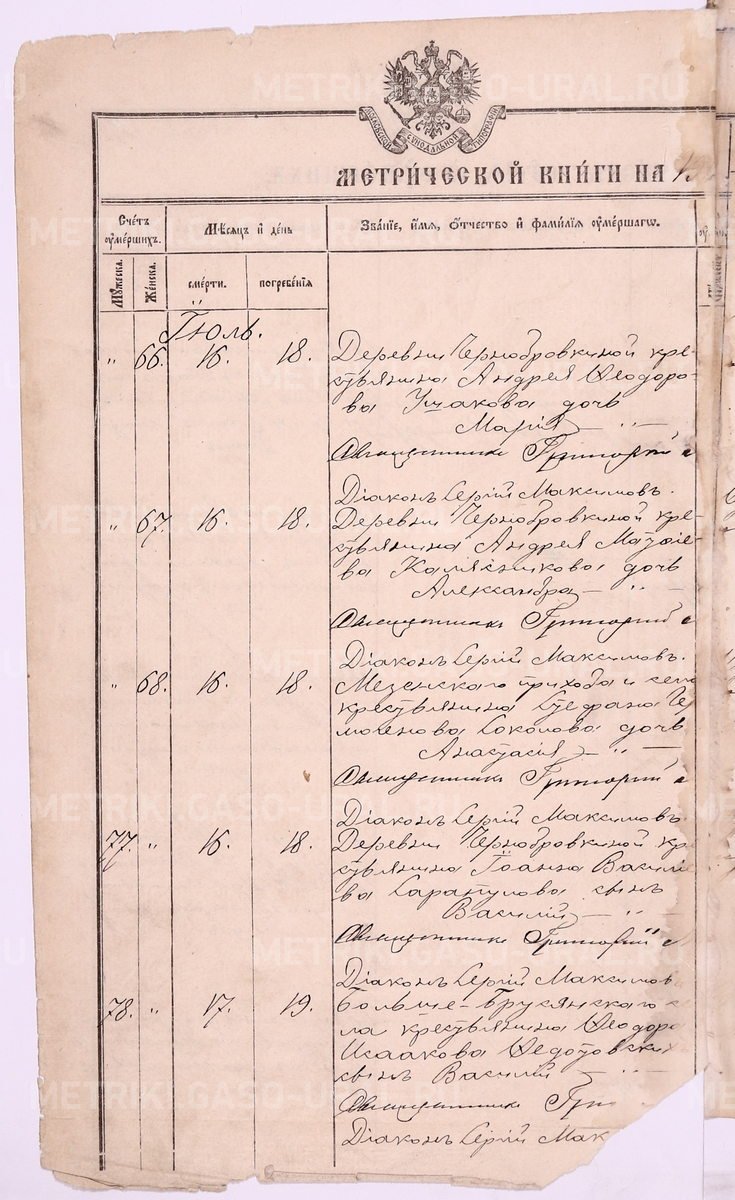 МОСКОВСКОЙ СѴНОДАЛЬНОЙ ТИПОГРАФІИ
МЕТРИ́ЧЕСКОЙ КНИ́ГИ НА
Сче́тъ оу҆ме́ршихъ.
Мѣ́сяцъ и҆ де́нь
Зва́нїе, и҆́мя, ѻ҆́тчество и҆ фами́лїя оу҆ме́ршагѡ.
Му́жеска.
Же́нска.
сме́рти.
погребе́нїя
Іюль.
" 66. 16. 18. Деревни Чернобровкиной кре-
стьянина Андрея Ѳеодоро-
ва Ушакова дочь
Марія — " —
Священникъ Григорій
Діаконъ Сергій Максимовъ.
" 67. 16. 18. Деревни Чернобровкиной кре-
стьянина Андрея Матѳіе-
ва дочь
Александра — " —
Священникъ Григорій
Діаконъ Сергій Максимовъ.
" 68. 16. 18. Мезенскаго прихода и села
крестьянина Стефана Ер
могенова Соколова дочь
Анастасія — " —
Священникъ Григорій
Діаконъ Сергій Максимовъ.
77. " 16. 18. Деревни Чернобровкиной кре
стьянина Іоанна Василіе
ва Сарапулова сынъ
Василій — " —
Священникъ Григорій
Діаконъ Сергій Максимов
78. " 17. 19. Больше-Брусянскаго се
ла крестьянина Ѳеодора
Исаакова Ѳедотовских
сынъ Василій — " —
Священникъ Гри
Діаконъ Сергій Мак